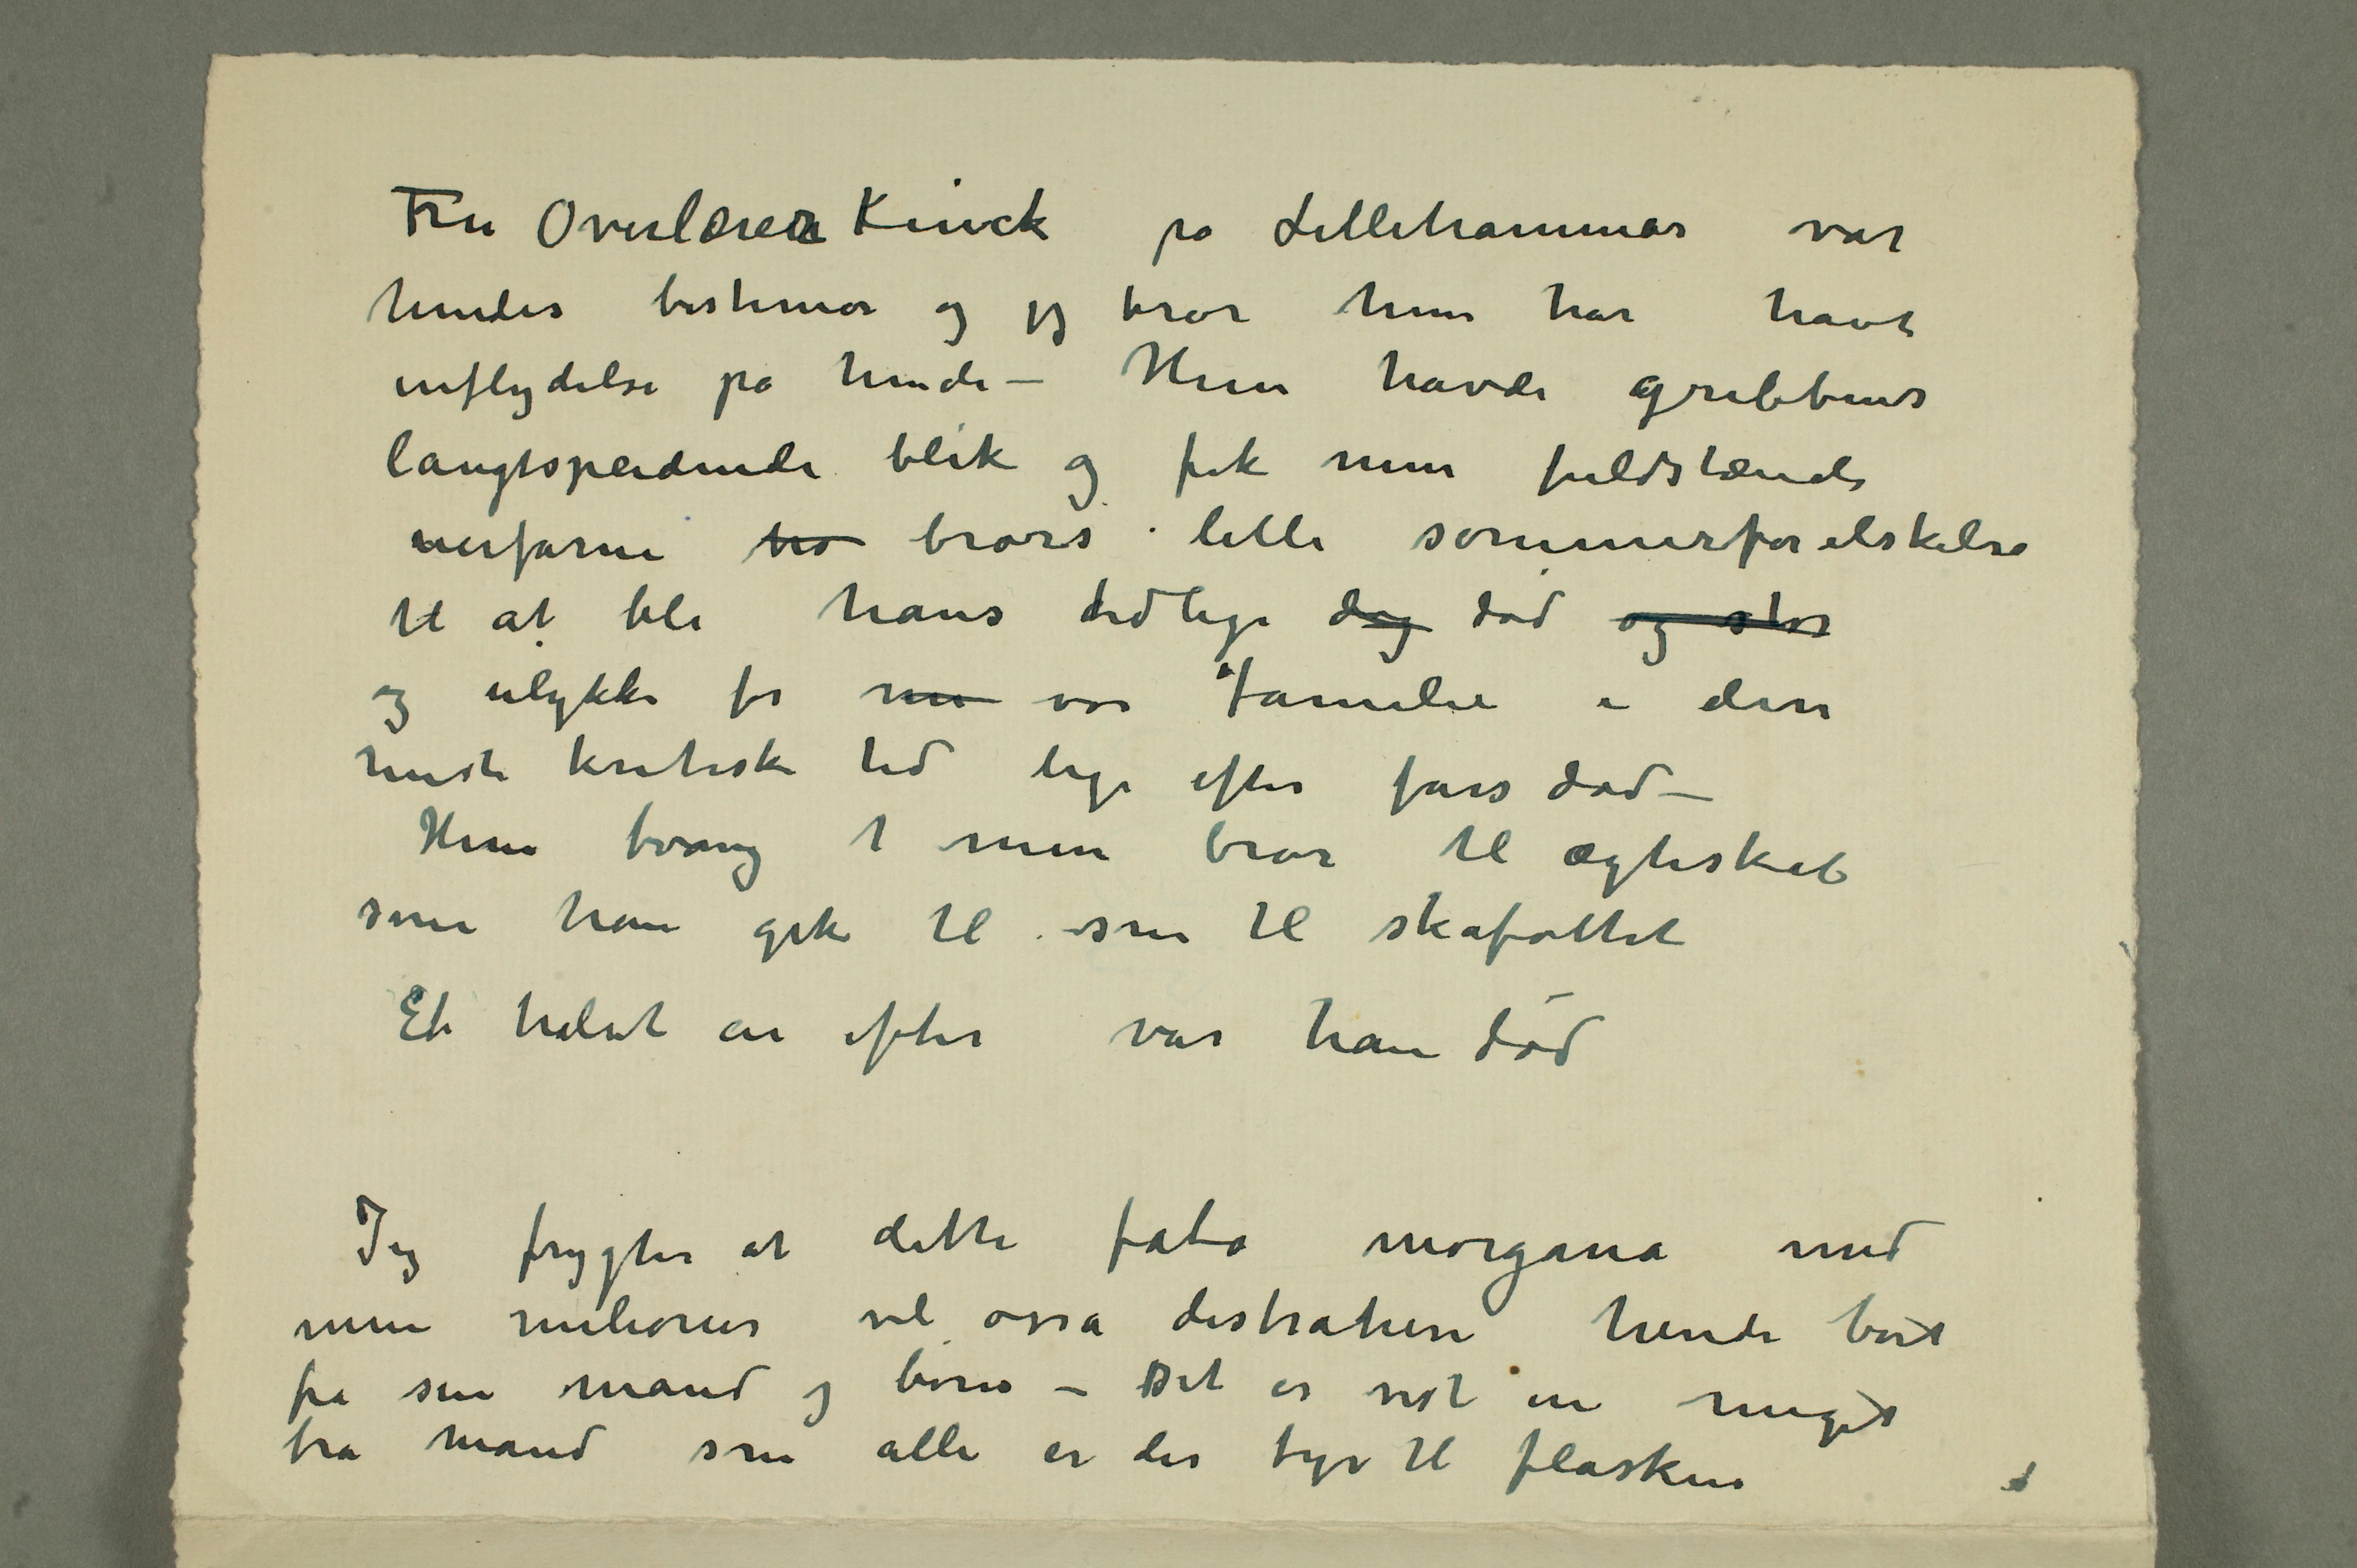 Fru Overlærer Kinck på Lillehammer var
hendes bestemor og jeg tror hun har havt
inflydelse på hende – Hun havde gribbens
langtspeidende blik og fik min fuldstændi
uerfarne bro brors lille sommerforelskelse
til at bli hans tidlige dø død og stor
og ulykke for mi vor familie i den
mest kritiske tid lige efter fars død –
Hun tvang min bror til ægteskab
som han gik til som til skafottet
Et halvt år efter var han død
Jeg frygter at dette fata morgana med
mine milioner vil osså distrahere hende bort
fra sin mand og børn – Det er vist en meget
bra mand som alle er der tyr til flasken